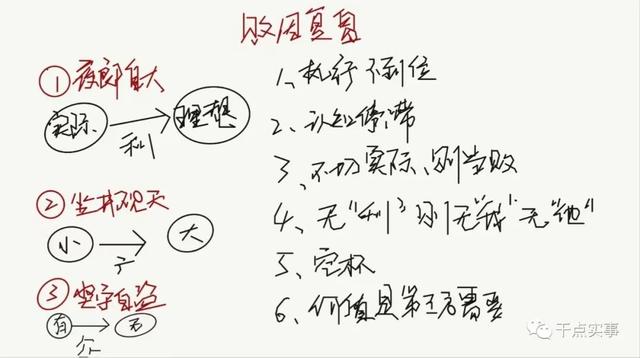 败因复盘
① 夜郎自大
实际 → 理想
利
② 坐井观天
小 → 大
③ 坚守自盗
有 →
1、执行不到位
2、认知停滞
3、不切实际、则当败
4、无“利”则无“我”无“他”
5、空杯
6、价值是第三者需要
干点实事